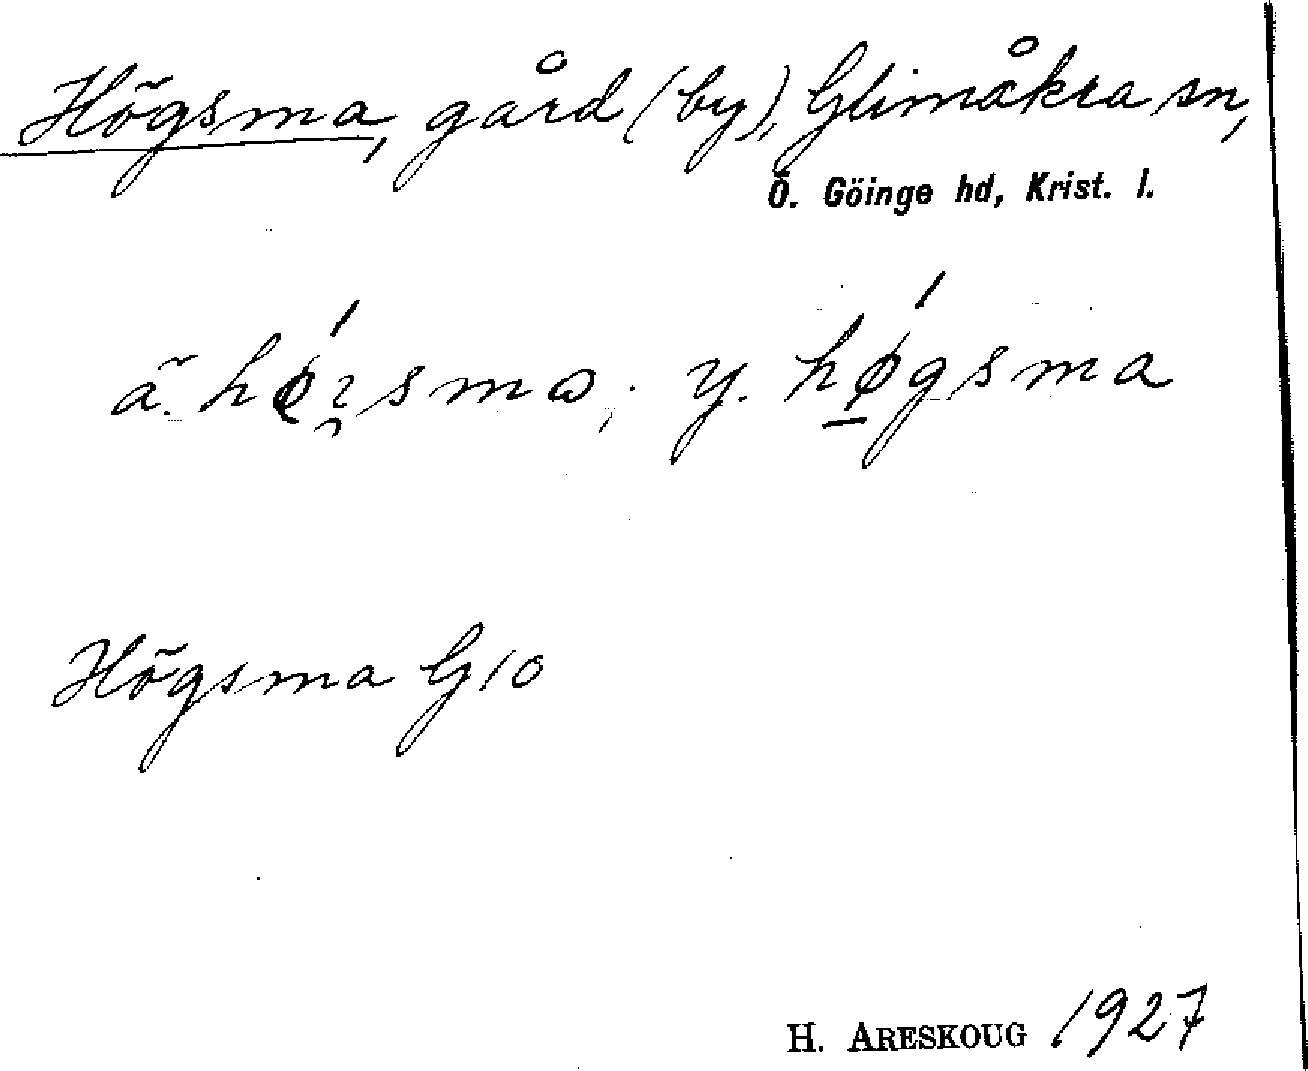 Högsma, gård (by), Glimåkra sn,
Ö. Göinge hd, Krist. l.
ä. ; y. høgsma
Högsma G10
H. ARESKOUG 1927